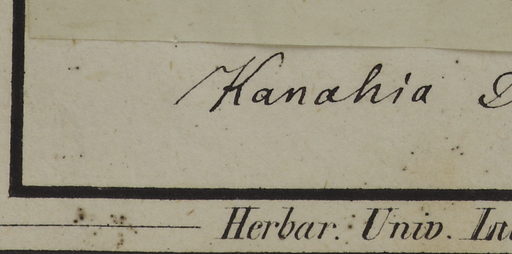 Kanahia
Herbar. Univ.